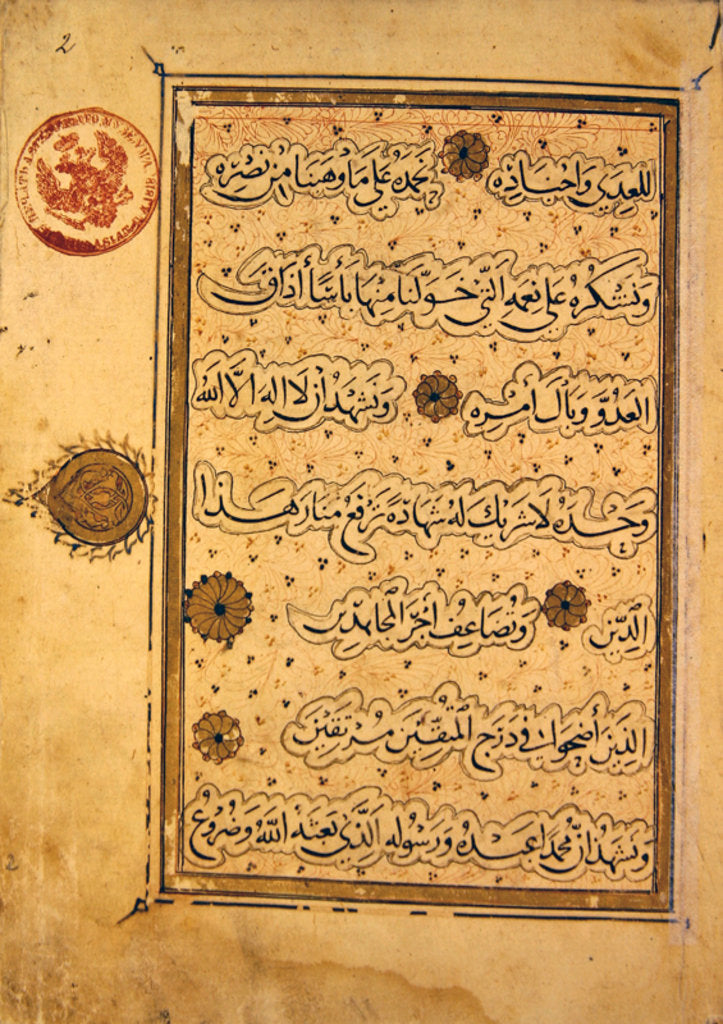 2
للعدى واجتباذه نحمده على ما وهبنا من نصره
ونشكره على نعمه التى خولنا منها بأسا أذاق
العدو وبال أمره ونشهد ان لا اله الا الله
وحده لا شريك له شهادة ترفع منار هذا
الدين وتضاعف أجر المجاهدين
الذين أضحوا فى درج المتقين مرتقين
ونشهد ان محمدا عبده ورسوله الذى بعثه الله وضروع